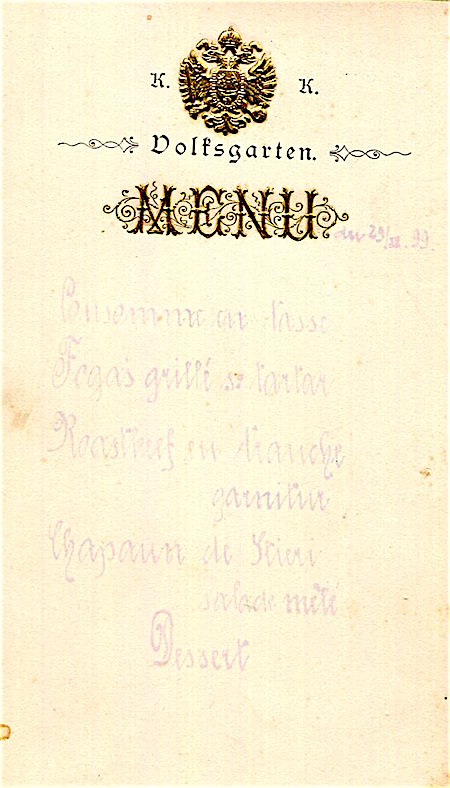 K. K.
Volksgarten.
MENU
den 29/XII. 99.
Consomme en tasse
Fogas grillé sc tartar
Roastbef en tranche
garnitur
Chapaun de Stieri
salade mêlé
Dessert